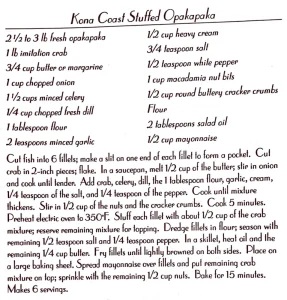 Kona Coast Stuffed Opakapaka
2 ½ to 3 lb fresh opakapaka
1 lb imitation crab
3/4 cup butter or margarine
1 cup chopped onion
1 ½ cups minced celery
1/4 cup chopped fresh dill
1 tablespoon flour
2 teaspoons minced garlic
1/2 cup heavy cream
3/4 teaspoon salt
1/2 teaspoon white pepper
1 cup macadamia nut bits
1/2 cup round buttery cracker crumbs
Flour
2 tablespoons salad oil
1/2 cup mayonnaise
Cut fish into 6 fillets; make a slit on one end of each fillet to form a pocket. Cut
crab in 2-inch pieces; flake. In a saucepan, melt 1/2 cup of the butter; stir in onion
and cook until tender. Add crab, celery, dill, the 1 tablespoon flour, garlic, cream,
1/4 teaspoon of the salt, and 1/4 teaspoon of the pepper. Cook until mixture
thickens. Stir in 1/2 cup of the nuts and the cracker crumbs. Cook 5 minutes.
Preheat electric oven to 350°F. Stuff each fillet with about 1/2 cup of the crab
mixture; reserve remaining mixture for topping. Dredge fillets in flour; season with
remaining 1/2 teaspoon salt and 1/4 teaspoon pepper. In a skillet, heat oil and the
remaining 1/4 cup butter. Fry fillets until lightly browned on both sides. Place on
a large baking sheet. Spread mayonnaise over fillets and put remaining crab
mixture on top; sprinkle with the remaining 1/2 cup nuts. Bake for 15 minutes.
Makes 6 servings.